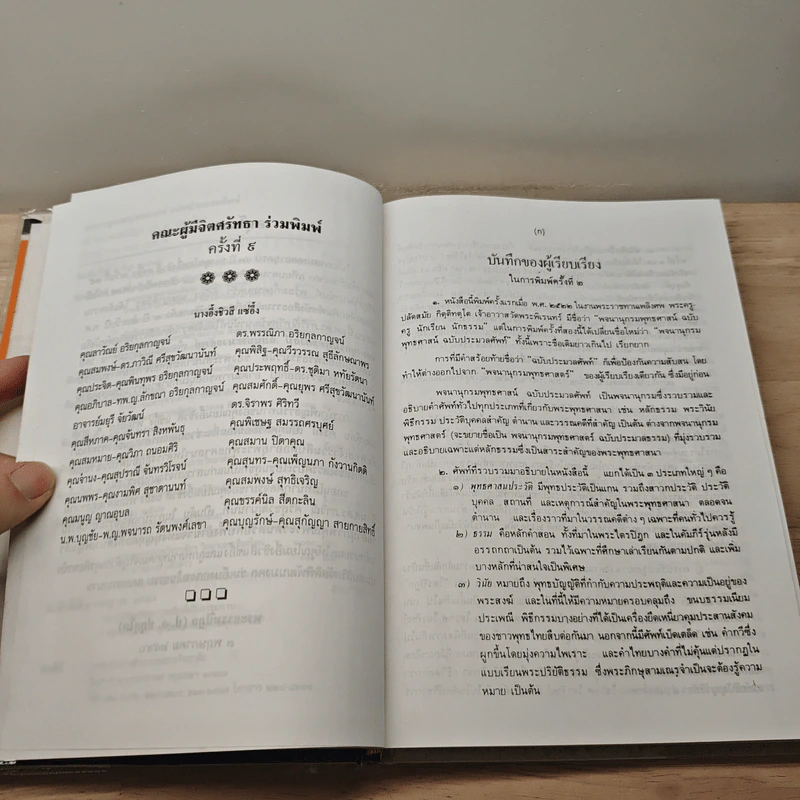 คณะผู้มีจิตศรัทธา ร่วมพิมพ์
ครั้งที่ ๙
นางอึ้งชิวลี แซ่อึ้ง
คุณลาวัณย์ อริยกุลกาญจน์
ดร.พรรณิภา อริยกุลกาญจน์
คุณสมพงษ์-ดร.ภาวิณี ศรีสุขวัฒนานันท์
คุณพิสิฐ-คุณวีรวรรณ สุธีลักษณาพร
คุณประจิต-คุณพินทุพร อริยกุลกาญจน์
คุณประพฤทธิ์-ดร.ชุติมา หทัยรัตนา
คุณอภิบาล-ทพ.ญ.ลักขณา อริยกุลกาญจน์
คุณสมศักดิ์-คุณยุพร ศรีสุขวัฒนานันท์
อาจารย์มยุรี จัยวัฒน์
ดร.จิราพร ศิริทวี
คุณสีหภาค-คุณจันทรา สิงหพันธุ
คุณพิเชษฐ สมรรถศรบุศย์
คุณสมหมาย-คุณวิภา ถนอมศิริ
คุณสมาน ปิตาคุณ
คุณจำนง-คุณสุปราณี จันทรวิโรจน์
คุณสุนทร-คุณเพ็ญนภา กังวานกิตติ
คุณนพพร-คุณงามพิศ สุขาดานนท์
คุณสมพงษ์ สุทธิเจริญ
คุณมนูญ ญาณอุบล
คุณขรรค์นิล สืดกะลิน
น.พ.บุญชัย-พ.ญ.พจนารถ รัตนพงศ์เลขา
คุณบุญรักษ์-คุณสุกัญญา สายกายสิทธิ์
(ก)
บันทึกของผู้เรียบเรียง
ในการพิมพ์ครั้งที่ ๒
๑. หนังสือนี้พิมพ์ครั้งแรกเมื่อ พ.ศ. ๒๕๒๒ ในงานพระราชทานเพลิงศพ พระครู-
ปลัดสมัย กิตฺติทตฺโต เจ้าอาวาสวัดพระพิเรนทร์ มีชื่อว่า "พจนานุกรมพุทธศาสน์ ฉบับ
ครู นักเรียน นักธรรม" แต่ในการพิมพ์ครั้งที่สองนี้ได้เปลี่ยนชื่อใหม่ว่า "พจนานุกรม
พุทธศาสน์ ฉบับประมวลศัพท์" ทั้งนี้เพราะชื่อเดิมยาวเกินไป เรียกยาก
การที่มีคำสร้อยท้ายชื่อว่า "ฉบับประมวลศัพท์" ก็เพื่อป้องกันความสับสน โดย
ทำให้ต่างออกไปจาก "พจนานุกรมพุทธศาสตร์" ของผู้เรียบเรียงเดียวกัน ซึ่งมีอยู่ก่อน
พจนานุกรมพุทธศาสน์ ฉบับประมวลศัพท์ เป็นพจนานุกรมซึ่งรวบรวมและ
อธิบายคำศัพท์ทั่วไปทุกประเภทที่เกี่ยวกับพระพุทธศาสนา เช่น หลักธรรม พระวินัย
พิธีกรรม ประวัติบุคคลสำคัญ ตำนาน และวรรณคดีที่สำคัญ เป็นต้น ต่างจากพจนานุกรม
พุทธศาสตร์ (จะขยายชื่อเป็น พจนานุกรมพุทธศาสตร์ ฉบับประมวลธรรม) ที่มุ่งรวบรวม
และอธิบายเฉพาะแต่หลักธรรมซึ่งเป็นสาระสำคัญของพระพุทธศาสนา
๒. ศัพท์ที่รวบรวมมาอธิบายในหนังสือนี้ แยกได้เป็น ๓ ประเภทใหญ่ ๆ คือ
๑) พุทธศาสนประวัติ มีพุทธประวัติเป็นแกน รวมถึงสาวกประวัติ ประวัติ
บุคคล สถานที่ และเหตุการณ์สำคัญในพระพุทธศาสนา ตลอดจน
ตำนาน และเรื่องราวที่มาในวรรณคดีต่าง ๆ เฉพาะที่คนทั่วไปควรรู้
๒) ธรรม คือหลักคำสอน ทั้งที่มาในพระไตรปิฎก และในคัมภีร์รุ่นหลังมี
อรรถกถาเป็นต้น รวมไว้เฉพาะที่ศึกษาเล่าเรียนกันตามปกติ และเพิ่ม
บางหลักที่น่าสนใจเป็นพิเศษ
๓) วินัย หมายถึง พุทธบัญญัติที่กำกับความประพฤติและความเป็นอยู่ของ
พระสงฆ์ และในที่นี้ให้มีความหมายครอบคลุมถึง ขนบธรรมเนียม
ประเพณี พิธีกรรมบางอย่างที่ได้เป็นเครื่องยึดเหนี่ยวคุมประสานสังคม
ของชาวพุทธไทยสืบต่อกันมา นอกจากนี้มีศัพท์เบ็ดเตล็ด เช่น คำกวีซึ่ง
ผูกขึ้นโดยมุ่งความไพเราะ และคำไทยบางคำที่ไม่คุ้นแต่ปรากฏใน
แบบเรียนพระปริยัติธรรม ซึ่งพระภิกษุสามเณรจำเป็นจะต้องรู้ความ
หมาย เป็นต้น